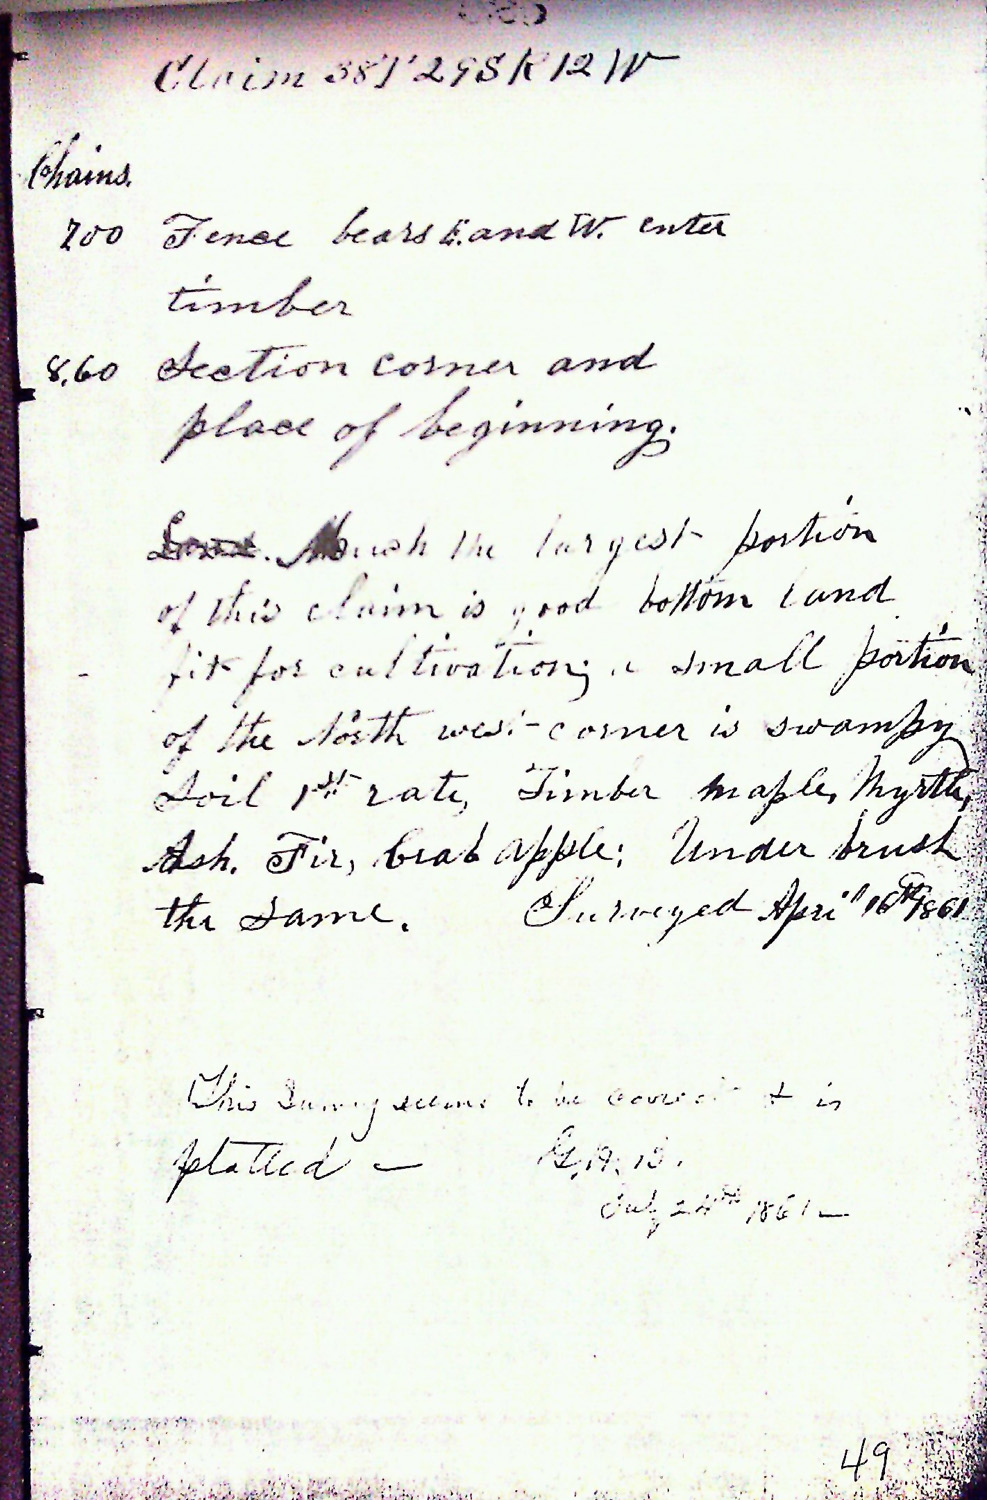 Claim 38 T 29 S R 12 W
Chains.
700 Fence bears E. and W. enter
timber
8.60 Section corner and
place of beginning.
Much the largest portion
of this claim is good bottom land
fit for cultivation; a small portion
of the North west corner is swampy
Soil 1st rate, Timber maple, Myrtle,
Ash. Fir, Crab apple; Under brush
the same. Surveyed April 16th 1861
This Survey seems to be correct & is
platted —
July 24th 1861 —
49